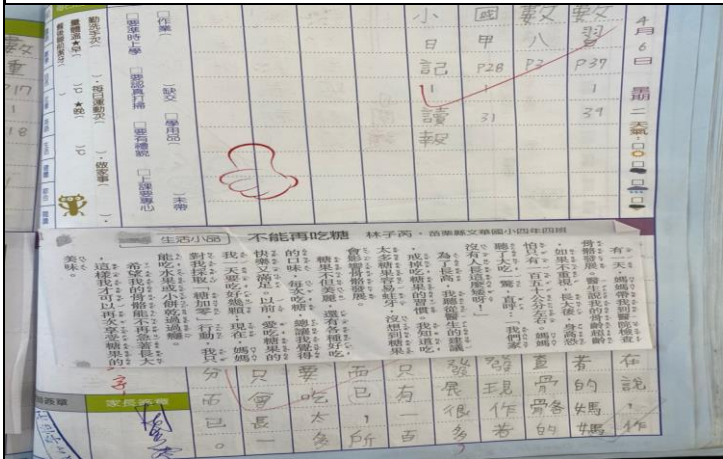 4月6日 星期二 天氣：
數習 P39 1 39
數八 P3 1
國甲 P28 1 31
小日記 1 讀報
□作業（ ）缺交 □學用品（ ）未帶
□要準時上學 □要認真打掃 □要有禮貌 □上課要專心
勤洗手 次（ ）．每日運動 次（ ）．做家事（ ）
量體溫★早（ ）℃ ★晚（ ）℃
生活小品
不能再吃糖 林子芮．苗栗縣文華國小四年四班
有一天，媽媽帶我到醫院檢查
骨骼發展。醫生說我的骨齡超齡
，如果不重視，長大後，身高恐
怕只有一百五十公分左右。媽媽
聽了大吃一驚，直呼：「我們家
沒有人長這麼矮呀！」
為了長高，我聽從醫生的建議
，戒掉吃糖果的習慣。我知道吃
太多糖果容易蛀牙，沒想到糖果
會影響骨骼發展。
糖果不但美麗，還有各種好吃
的口味，每次吃糖，總讓我覺得
快樂又滿足。以前，愛吃糖果的
我一天要吃好幾顆；現在，媽媽
對我採取「糖加零」行動，我只
能吃水果或小餅乾過過癮。
希望我的骨骼能不再急著長大
，這樣我才可以再次享受糖果的
美味。
在說，作
者的媽媽
直骨骼的
發現作者
發展很多
只有一百
而已，所
要吃太多
只會長一
分而已。
家長簽章